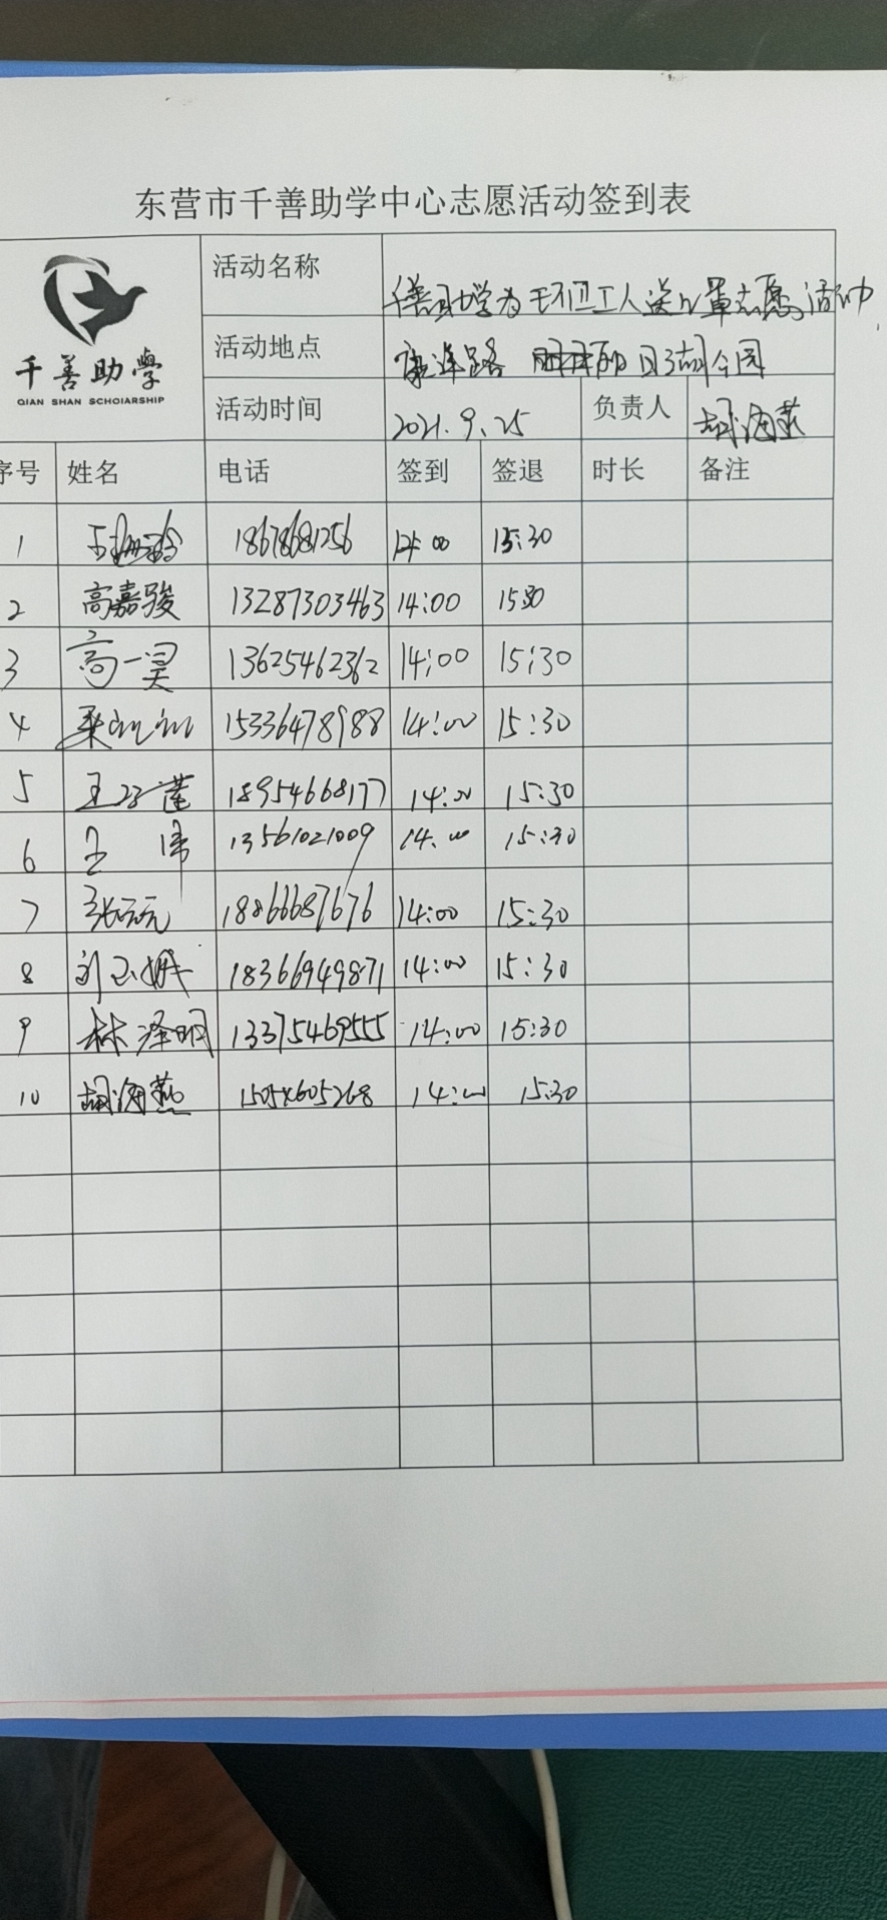 东营市千善助学中心志愿活动签到表
千善助學
QIAN SHAN SCHOIARSHIP
活动名称 千善助学为环卫工人送口罩志愿活动
活动地点 路 明月湖公园
活动时间 2021.9.25 负责人 胡海燕
序号 姓名 电话 签到 签退 时长 备注
1 18678681256 14:00 15:30
2 高嘉骏 13287303463 14:00 1530
3 高一昊 13625462362 14:00 15:30
4 15336478988 14:00 15:30
5 王 莲 18954668177 14:00 15:30
6 王 伟 13561021009 14:00 15:30
7 张元元 18866687676 14:00 15:30
8 刘玉娥 18366949871 14:00 15:30
9 林泽明 13375469555 14:00 15:30
10 胡海燕 15054605268 14:00 15:30